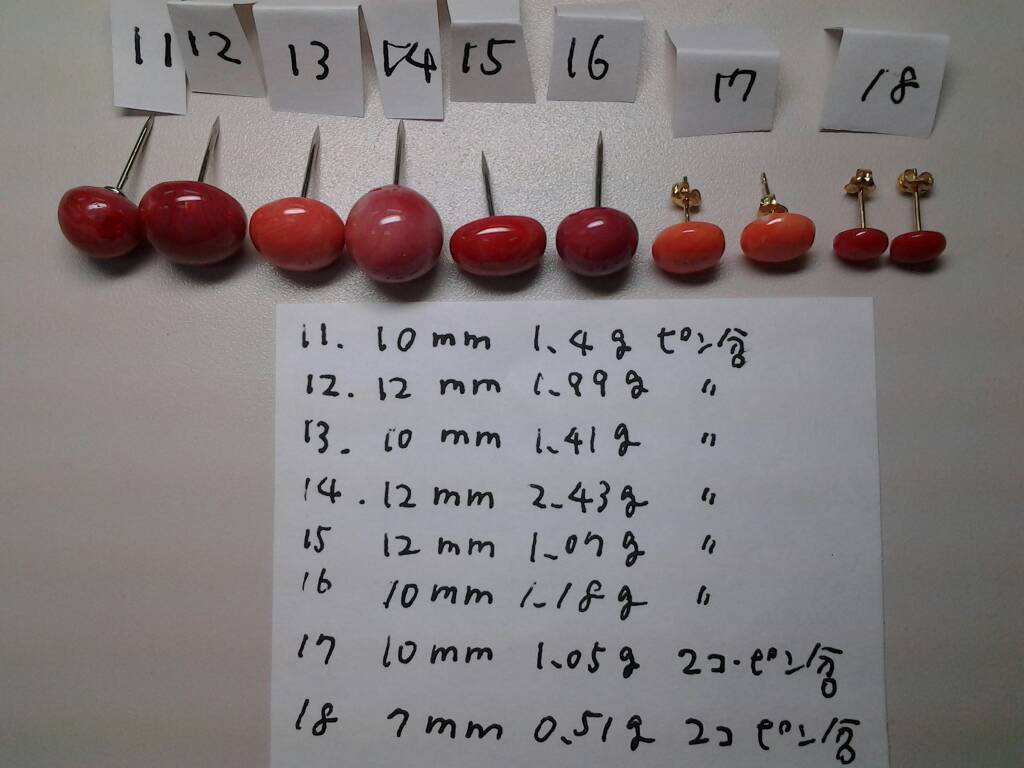 11
12
13
14
15
16
17
18
11. 10 mm 1.4g ピン含
12. 12 mm 1.99g 〃
13. 10 mm 1.41g 〃
14. 12 mm 2.43g 〃
15 12 mm 1.07g 〃
16 10 mm 1.18g 〃
17 10 mm 1.05g 2コ・ピン含
18 7 mm 0.51g 2コ ピン含